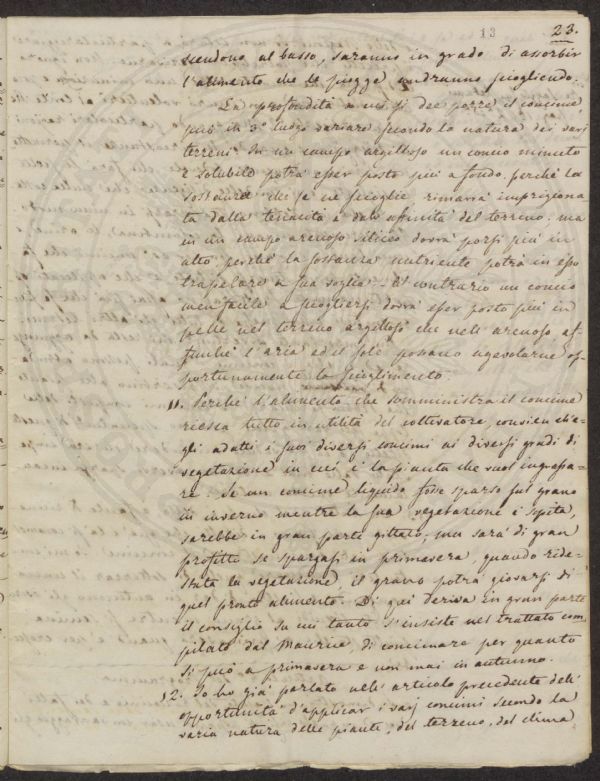 13 23.
scendono al basso, saranno in grado di assorbir
l'alimento che le piogge andranno sciogliendo.
La profondità a cui si dee porre il concime,
può in 3° luogo variare secondo la natura dei varj
terreni. In un campo argilloso un concio minuto
e solubile potrà esser posto più a fondo, perchè la
sostanza che se ne scioglie rimarrà imprigiona
ta dalla tenacità e dall'affinità del terreno: ma
in un campo arenoso siliceo dovrà porsi più in
alto perchè la sostanza nutriente potrà in esso
trapelare a sua voglia. Al contrario un concio
men facile a sciogliersi dovrà esser posto più in
pelle nel terreno argilloso che nell'arenoso, af-
finchè l'aria ed il sole possano agevolarne op-
portunamente lo scioglimento.
11. Perchè l'alimento che somministra il concime
riesca tutto in utilità del coltivatore, convien ch'e-
gli adatti i suoi diversi concimi ai diversi gradi di
vegetazione in cui è la pianta che vuol ingrassa-
re. Se un concime liquido fosse sparso sul grano
in inverno mentre la sua vegetazione è sopita,
sarebbe in gran parte gittato; ma sarà di gran
profitto se spargasi in primavera, quando ride-
stata la vegetazione il grano potrà giovarsi di
quel pronto alimento. Di qui deriva in gran parte
il consiglio su cui tanto s'insiste nel trattato com-
pilato dal Maurice, di concimare per quanto
si può a primavera e non mai in autunno.
12. Io ho già parlato nell'articolo precedente dell'
opportunità d'applicar i varj concimi secondo la
varia natura delle piante, del terreno, del clima